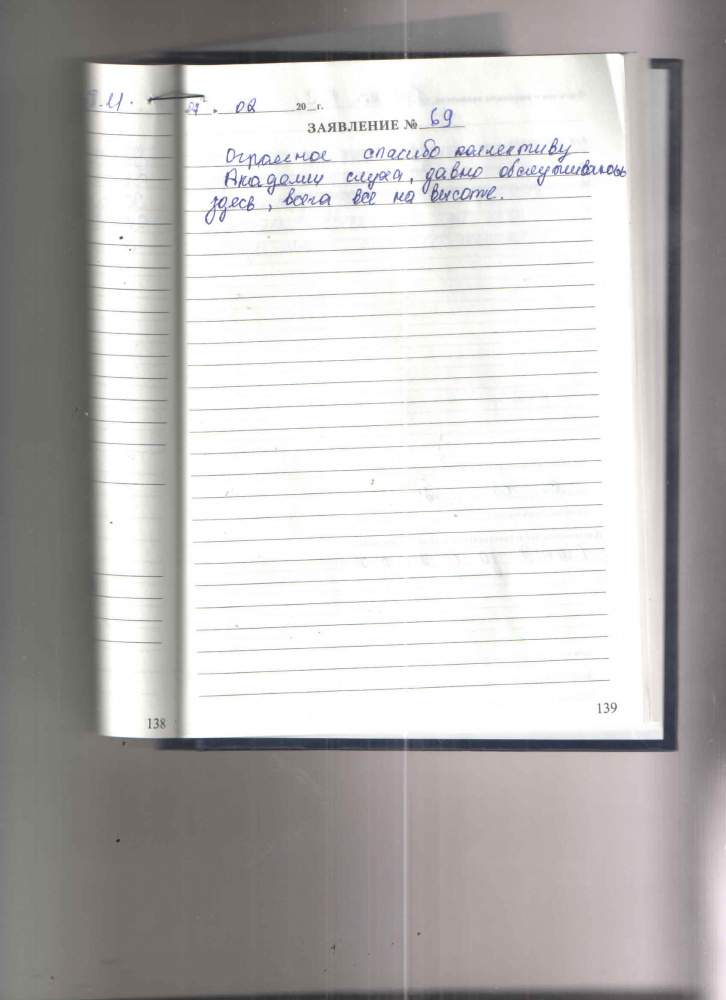 27. 02 20 г.
ЗАЯВЛЕНИЕ № 69
Огромное спасибо коллективу
Академии слуха, давно обслуживаюсь
здесь, всега все на высоте.
138
139